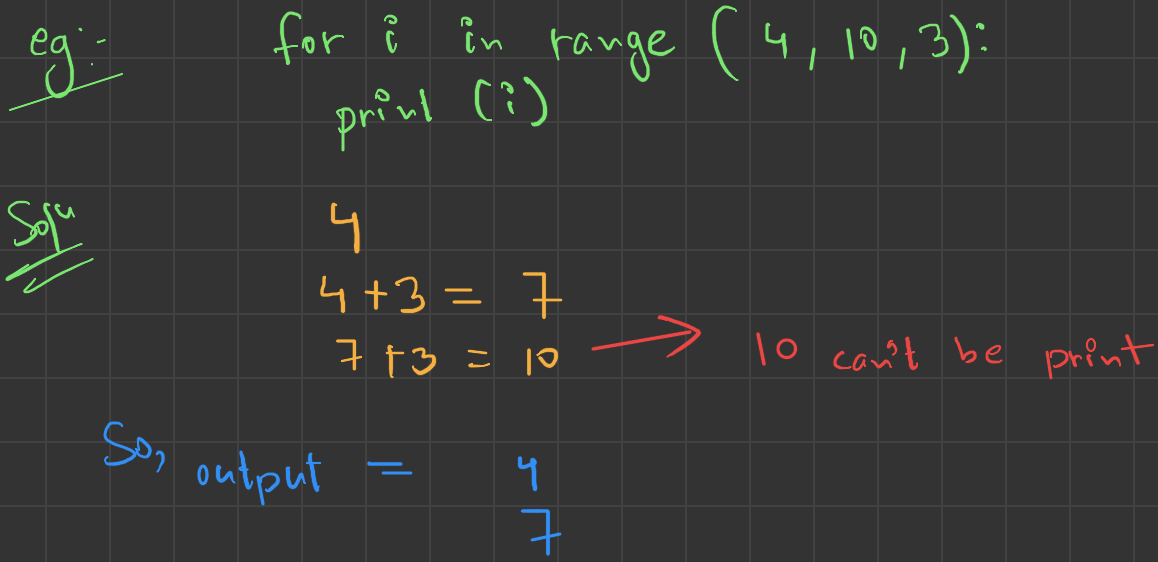 eg:- for i in range (4, 10, 3):
print (i)
Soln
4
4 + 3 = 7
7 + 3 = 10 → 10 can't be print
So, output = 4
7